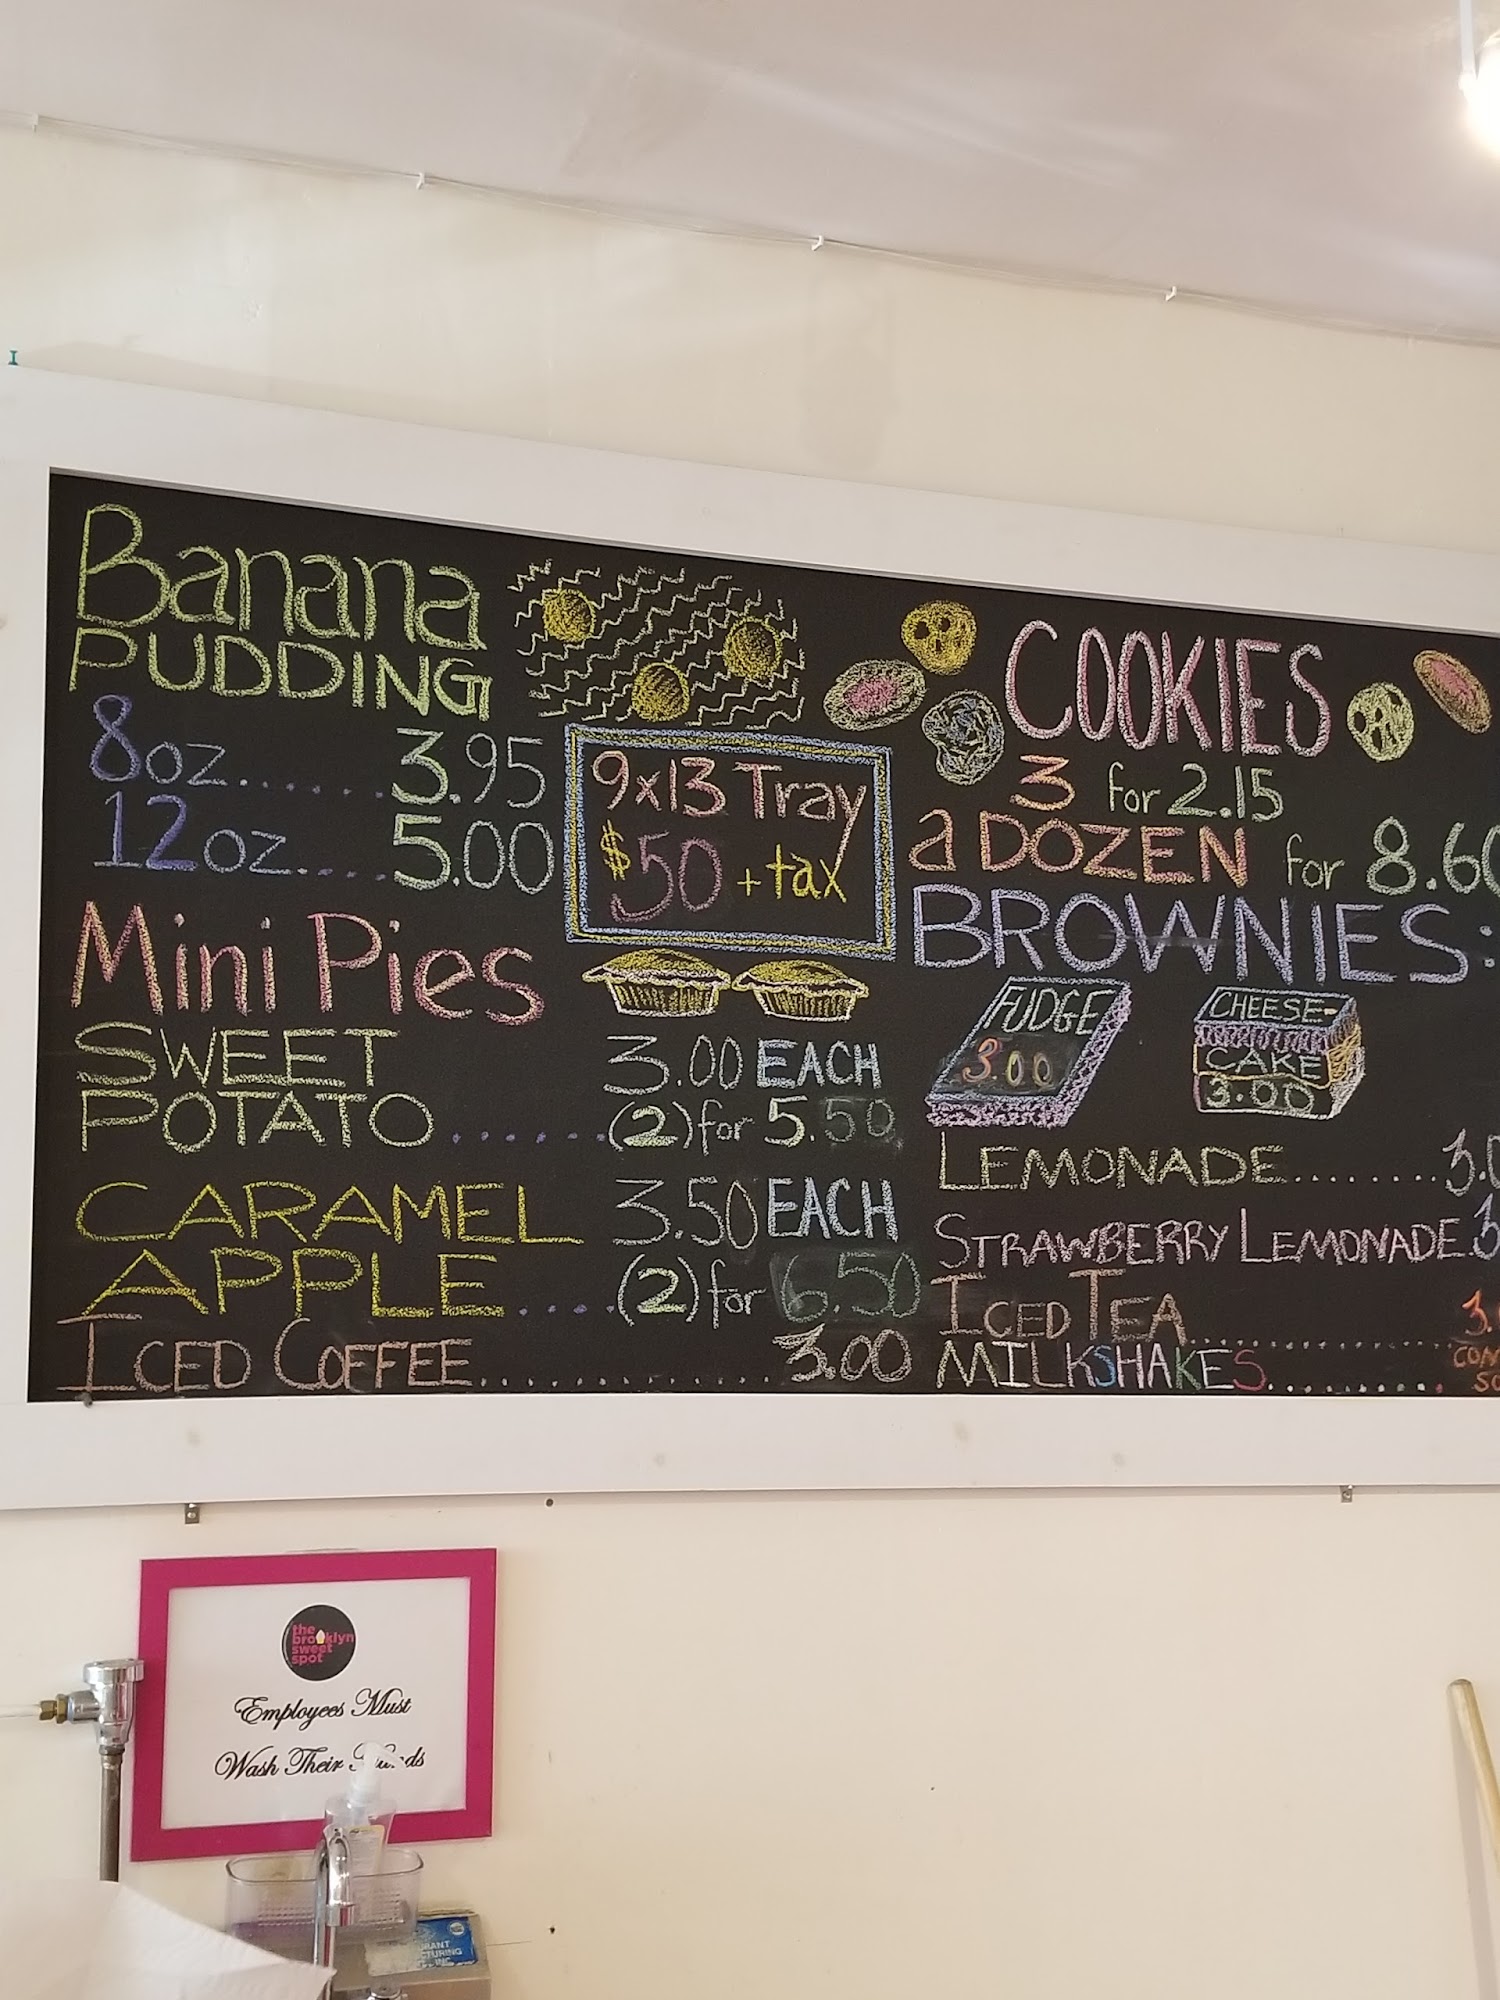 Banana
PUDDING
8oz.......3.95
12oz.....5.00
9x13 Tray
$50 + tax
Mini Pies
SWEET
POTATO
3.00 EACH
(2) for 5.50
CARAMEL
APPLE
3.50 EACH
(2) for 6.50
ICED COFFEE
3.00
COOKIES
3 for 2.15
a DOZEN for 8.60
BROWNIES:
FUDGE
3.00
CHEESE-
CAKE
3.00
LEMONADE
STRAWBERRY LEMONADE
ICED TEA
MILKSHAKES
the
brooklyn
sweet
spot
Employees Must
Wash Their Hands